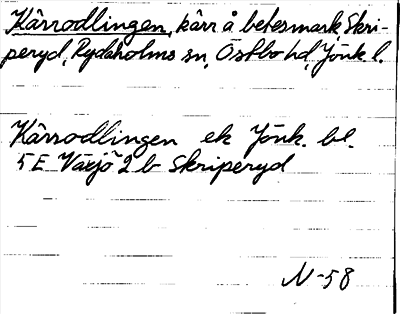 Kärrodlingen, kärr å betesmark, Skri-
peryd, Rydaholms sn, Östbo hd, Jönk. l.
Kärrodlingen ek Jönk. bl.
5 E Växjö 2 b Skriperyd
N-58